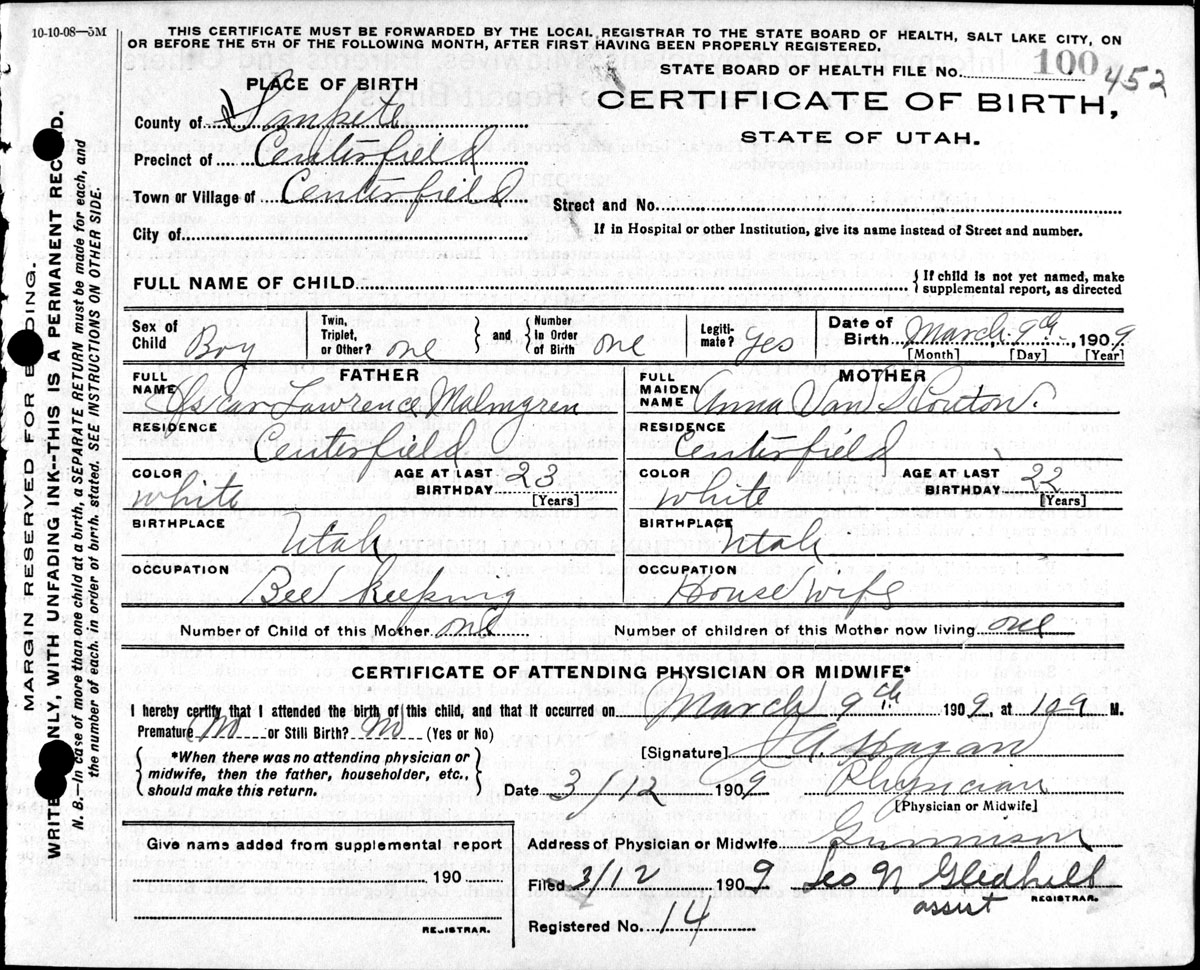 10-10-08—5M
THIS CERTIFICATE MUST BE FORWARDED BY THE LOCAL REGISTRAR TO THE STATE BOARD OF HEALTH, SALT LAKE CITY, ON
OR BEFORE THE 5TH OF THE FOLLOWING MONTH, AFTER FIRST HAVING BEEN PROPERLY REGISTERED.
STATE BOARD OF HEALTH FILE No. 100 452
PLACE OF BIRTH
CERTIFICATE OF BIRTH,
STATE OF UTAH.
County of Sanpete
Precinct of Centerfield
Town or Village of Centerfield
Street and No.
City of
If in Hospital or other Institution, give its name instead of Street and number.
FULL NAME OF CHILD
{If child is not yet named, make
supplemental report, as directed
Sex of Child Boy
Twin, Triplet, or Other? one
and
Number In Order of Birth one
Legiti- mate? Yes
Date of Birth March 9th, 1909
[Month] [Day] [Year]
FATHER
FULL NAME Oscar Lawrence Malmgren
RESIDENCE Centerfield.
COLOR white
AGE AT LAST BIRTHDAY 23
[Years]
BIRTHPLACE Utah
OCCUPATION Bee keeping
MOTHER
FULL MAIDEN NAME Anna Van
RESIDENCE Centerfield
COLOR white
AGE AT LAST BIRTHDAY 22
[Years]
BIRTHPLACE Utah
OCCUPATION House wife
Number of Child of this Mother one
Number of children of this Mother now living one
CERTIFICATE OF ATTENDING PHYSICIAN OR MIDWIFE*
I hereby certify that I attended the birth of this child, and that it occurred on March 9th 1909, at M.
Premature No or Still Birth? No (Yes or No)
{*When there was no attending physician or
midwife, then the father, householder, etc.,
should make this return.}
[Signature] J A Hagan
Date 3/12 1909 Physician
[Physician or Midwife]
Give name added from supplemental report
190
REGISTRAR.
Address of Physician or Midwife Gunnison
Filed 3/12 1909 Leo N Gledhill
assist REGISTRAR.
Registered No. 14
MARGIN RESERVED FOR BINDING.
WRITE ONLY, WITH UNFADING INK—THIS IS A PERMANENT RECORD.
N. B.—In case of more than one child at a birth, a SEPARATE RETURN must be made for each, and
the number of each, in order of birth, stated. SEE INSTRUCTIONS ON OTHER SIDE.